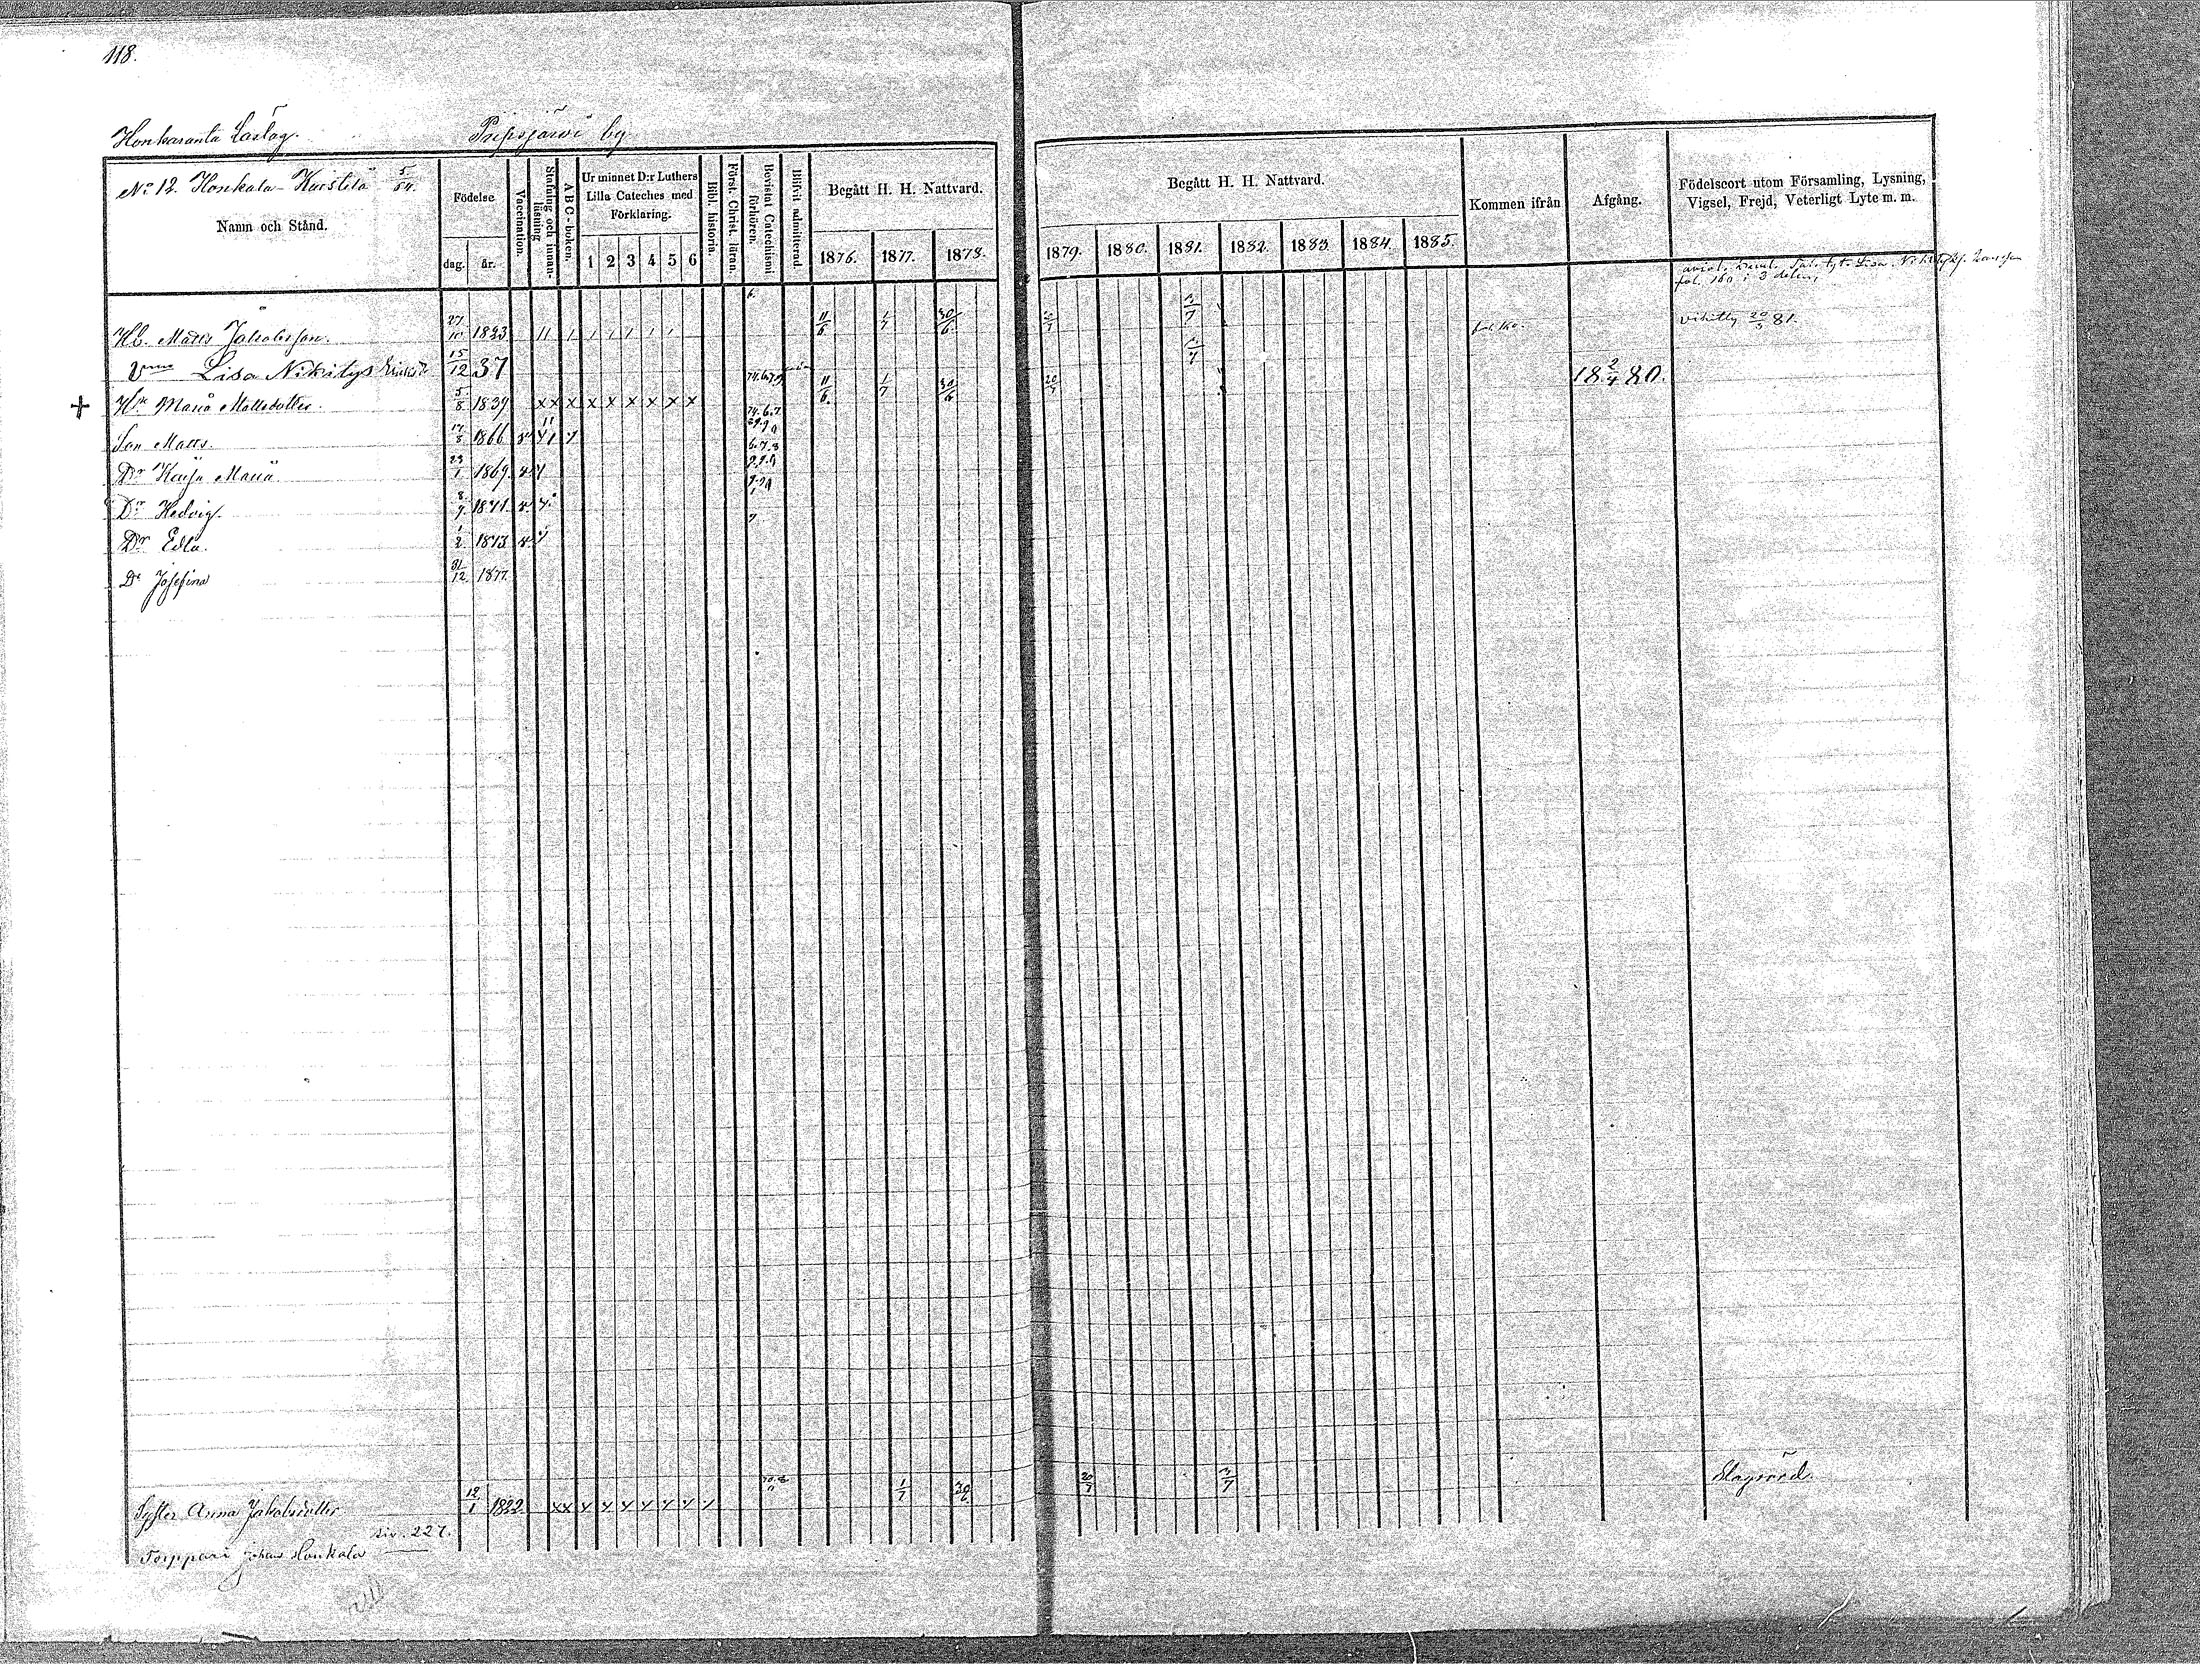 118.
Honkaranta Laslag. Pripsjärvi by
No 12. Honkala-Karstila 5/64.
Namn och Stånd.
Födelse
dag. år.
Vaccination.
Stafning och innanläsning
A B C-boken.
Ur minnet D:r Luthers Lilla Cateches med Förklaring.
1 2 3 4 5 6
Bibl. historia.
Först. Christ. läran.
Bevistat Catechismi förhören.
Blifvit admitterad.
Begått H. H. Nattvard.
1876. 1877. 1878.
Begått H. H. Nattvard.
1879. 1880. 1881. 1882. 1883. 1884. 1885.
Kommen ifrån
Afgång.
Födelseort utom Församling, Lysning, Vigsel, Frejd, Veterligt Lyte m. m.
fol. 160 i 3 delen,
Hb. Matts Jakobsson. 27/10 1833 11/6 1/7 30/6 20/7 3/7 vihitty 20/3 81.
Lisa Nikitys 15/12 37 3/7
+ Maria Mattsdotter. 5/8 1839 x x x x x x x x x 74.6.7.9 11/6. 1/7 30/6 20/7 18 2/4 80.
Son Matts. 17/8 1866 74.6.7.
Dr Kaisa Maria 23/1 1869. 6.7.8
Dr Hedvig. 8/9 1871
Dr Edla. 1/2 1873 7
Dr Josefina 31/12 1877.
Syster Anna Jakobsdotter 12/1 1822 1/7 20/7 3/7 Slagrörd.
siv. 227.
Torppari Johan Honkala